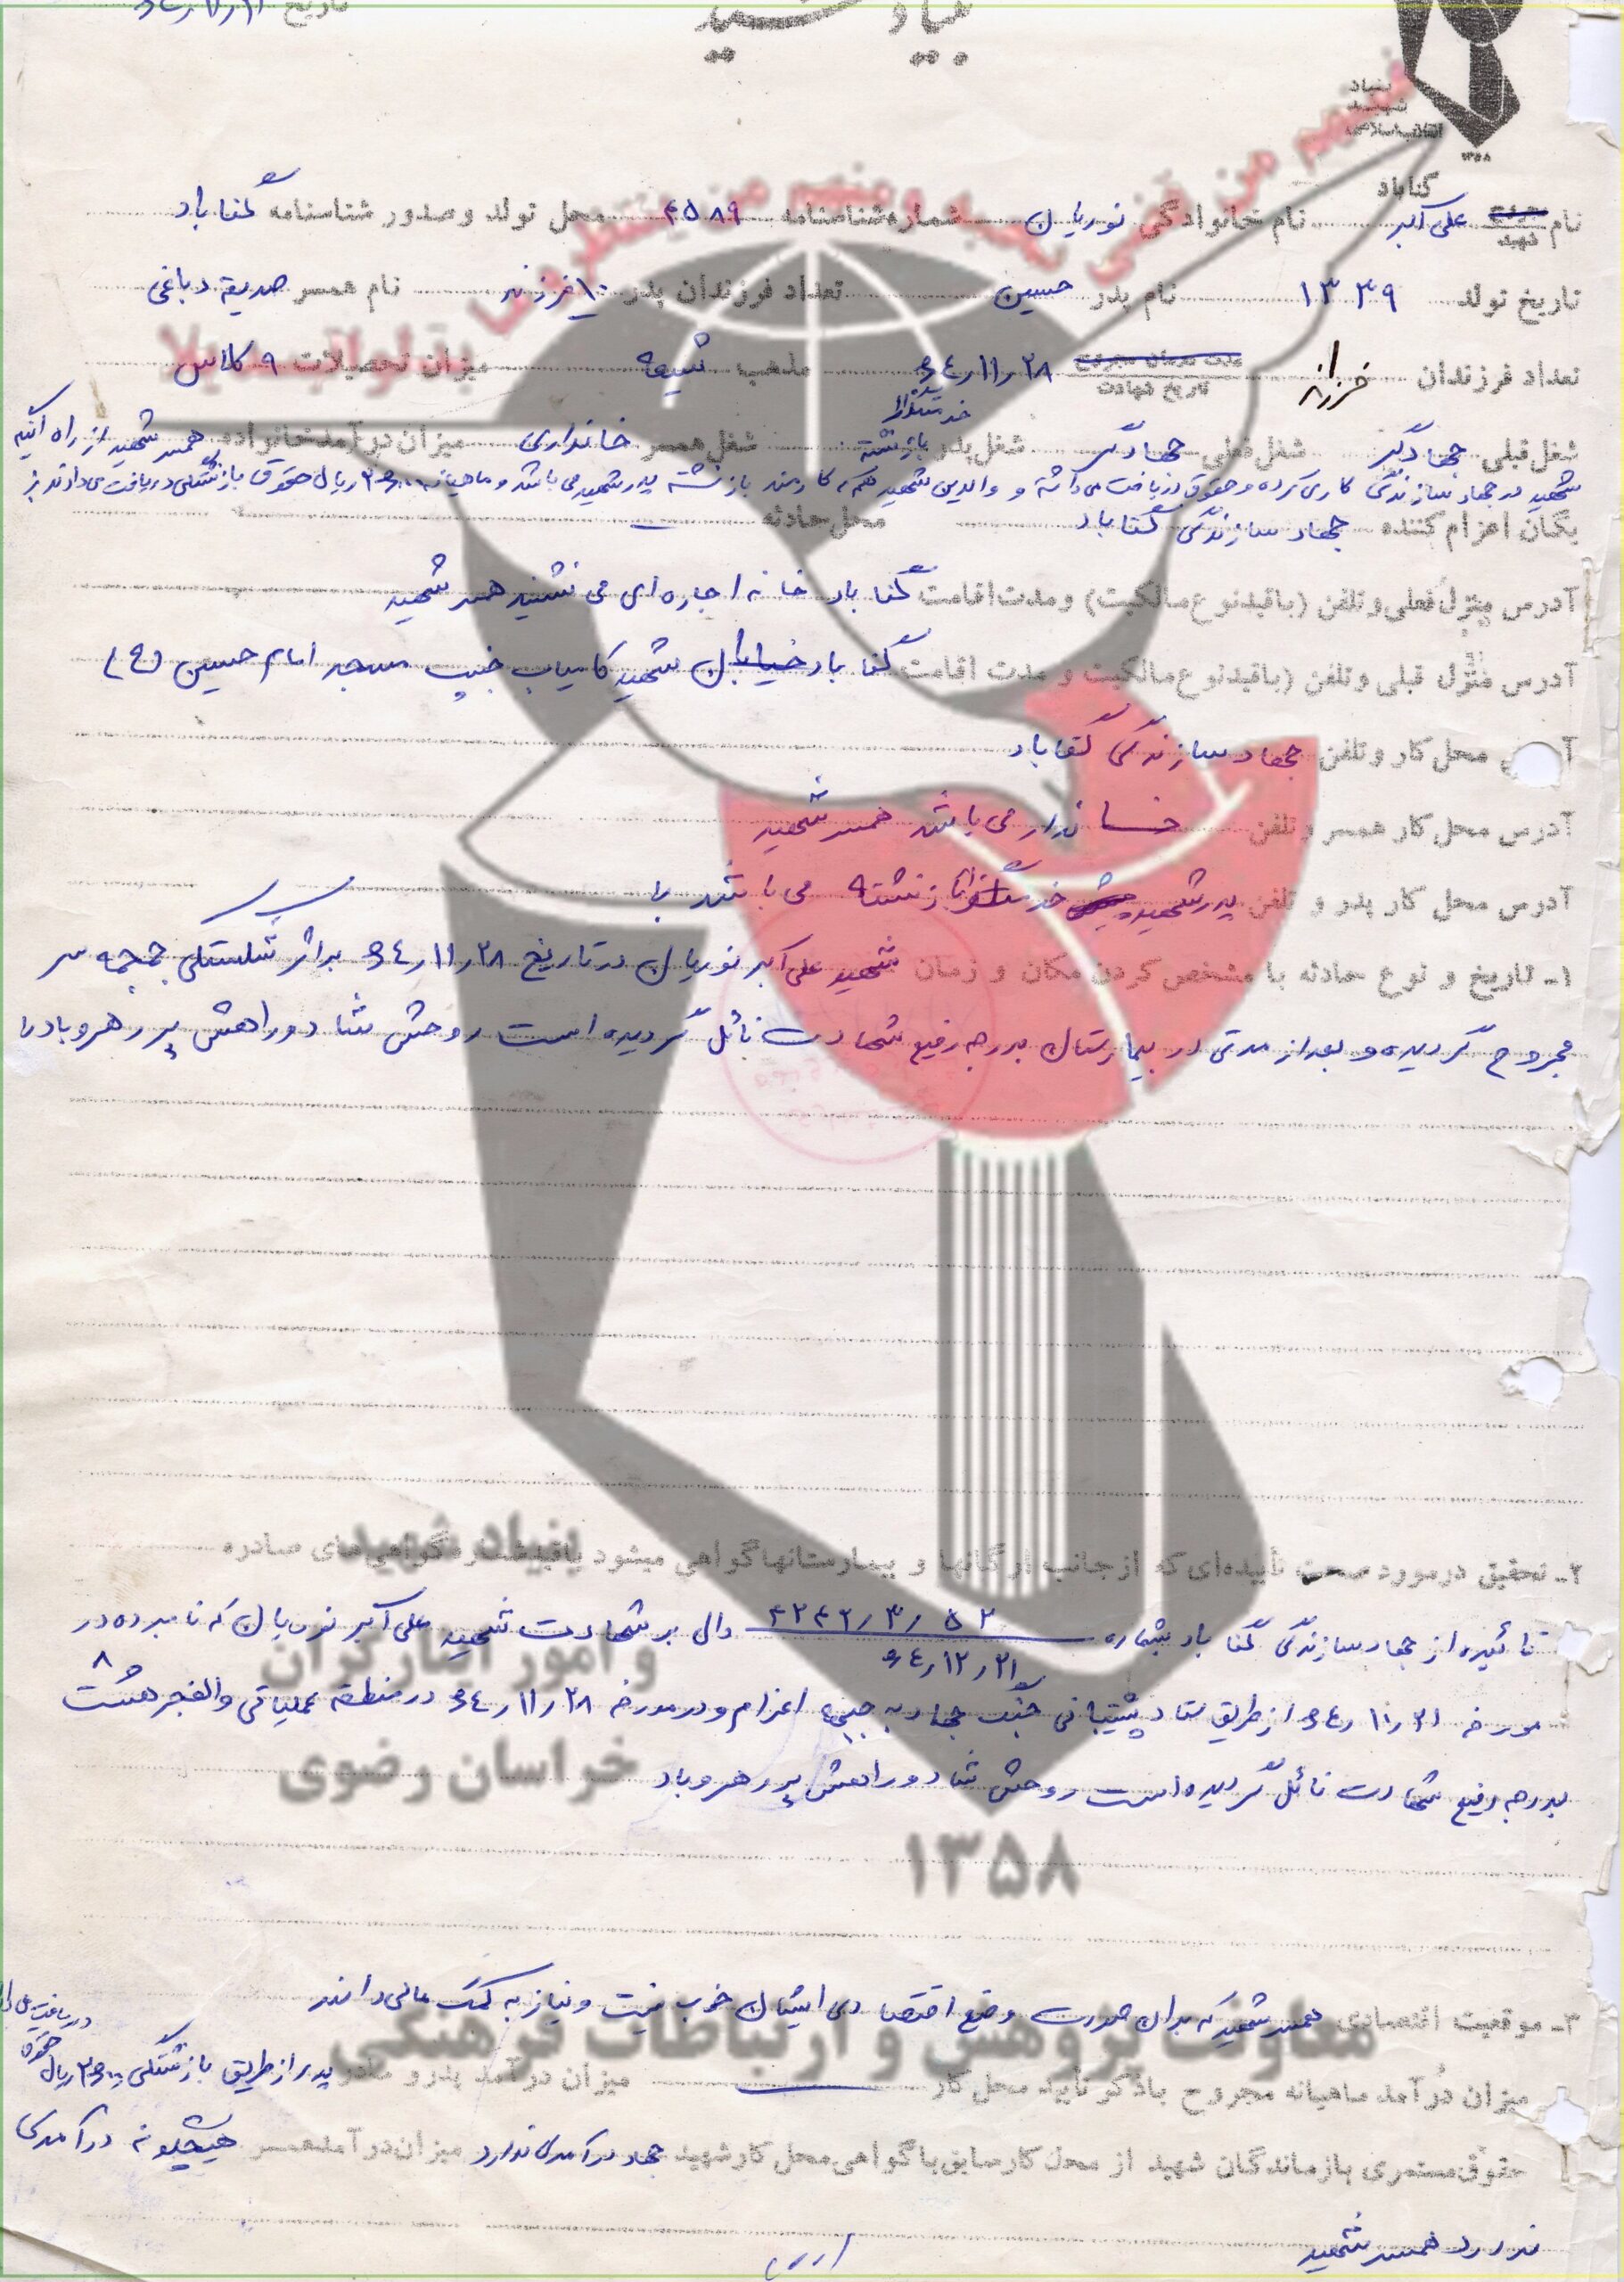 بنیاد شهید
تاریخ
بنیاد
شهید
انقلاب اسلامی
۱۳۵۸
گناباد
نام شهید علی اکبر نام خانوادگی نوریان شماره شناسنامه ۴۵۸۹ محل تولد و صدور شناسنامه گناباد
تاریخ تولد ۱۳۳۹ نام پدر حسین تعداد فرزندان پدر ۱۰ فرزند نام همسر صدیقه دباغی
تعداد فرزندان ۱ فرزند مدت درمان مجروح تاریخ شهادت ۶۴٫۱۱٫۲۸ مذهب شیعه میزان تحصیلات ۹ کلاس
شغل قبلی جهادگر شغل فعلی جهادگر شغل پدر خدمتگزار بازنشسته شغل همسر خانداری میزان درآمد خانواده همسر شهید از راه آنکه
شهید در جهاد سازندگی کار می کرده و حقوق دریافت می داشته و والدین شهید هم که کارمند بازنشسته پدر شهید می باشد و ماهیانه ریال حقوق بازنشستگی دریافت می دارند
یگان اعزام کننده جهاد سازندگی گناباد محل حادثه ـ
آدرس منزل فعلی و تلفن (با قید نوع مالکیت) و مدت اقامت گناباد خانه اجاره ای می نشیند همسر شهید
آدرس منزل قبلی و تلفن (با قید نوع مالکیت و مدت اقامت گناباد خیابان شهید کامیاب جنب مسجد امام حسین (ع)
محل کار و تلفن جهاد سازندگی گناباد
آدرس محل کار همسر و تلفن خانه دار می باشد همسر شهید
آدرس محل کار پدر و تلفن پدر شهید خدمتگزار بازنشسته می باشد
۱ـ تاریخ و نوع حادثه با مشخص کردن مکان و زمان شهید علی اکبر نوریان در تاریخ ۶۴٫۱۱٫۲۸ بر اثر شکستگی جمجمه سر
مجروح گردیده و بعد از مدتی در بیمارستان بدرجه رفیع شهادت نائل گردیده است روحش شاد و راهش پر رهرو باد
۲ـ تحقیق در مورد صحت تأییده‌ای که از جانب ارگانها و بیمارستانها گواهی میشود با قید شماره گواهی‌های صادره
تائیده از جهاد سازندگی گناباد بشماره ۵۲٫۳٫۴۲۴۲ ۶۴٫۱۲٫۲۱ دال بر شهادت شهید علی اکبر نوریان که نامبرده در
مورخه ۶۴٫۱۰٫۲۱ از طریق ستاد پشتیبانی جنگ جهاد به جبهه اعزام و در مورخه ۶۴٫۱۱٫۲۸ در منطقه عملیاتی والفجر هشت ۸
بدرجه رفیع شهادت نائل گردیده است روحش شاد و راهش پر رهرو باد
بنیاد شهید
و امور ایثارگران
خراسان رضوی
۱۳۵۸
۳ـ موقعیت اقتصادی همسر شهید که بدان صورت وضع اقتصادی ایشان خوب نیست و نیاز به کمک مالی دارند
معاونت پژوهش و ارتباطات فرهنگی
میزان درآمد ماهیانه مجروح با ذکر تأیید محل کار ـ میزان درآمد پدر و مادر پدر از طریق بازنشستگی ریال حقوق دریافت می
حقوق مستمری بازماندگان شهید از محل کار سابق با گواهی محل کار شهید جهاد درآمدی ندارد میزان درآمد همسر هیچگونه درآمدی
ندارد همسر شهید